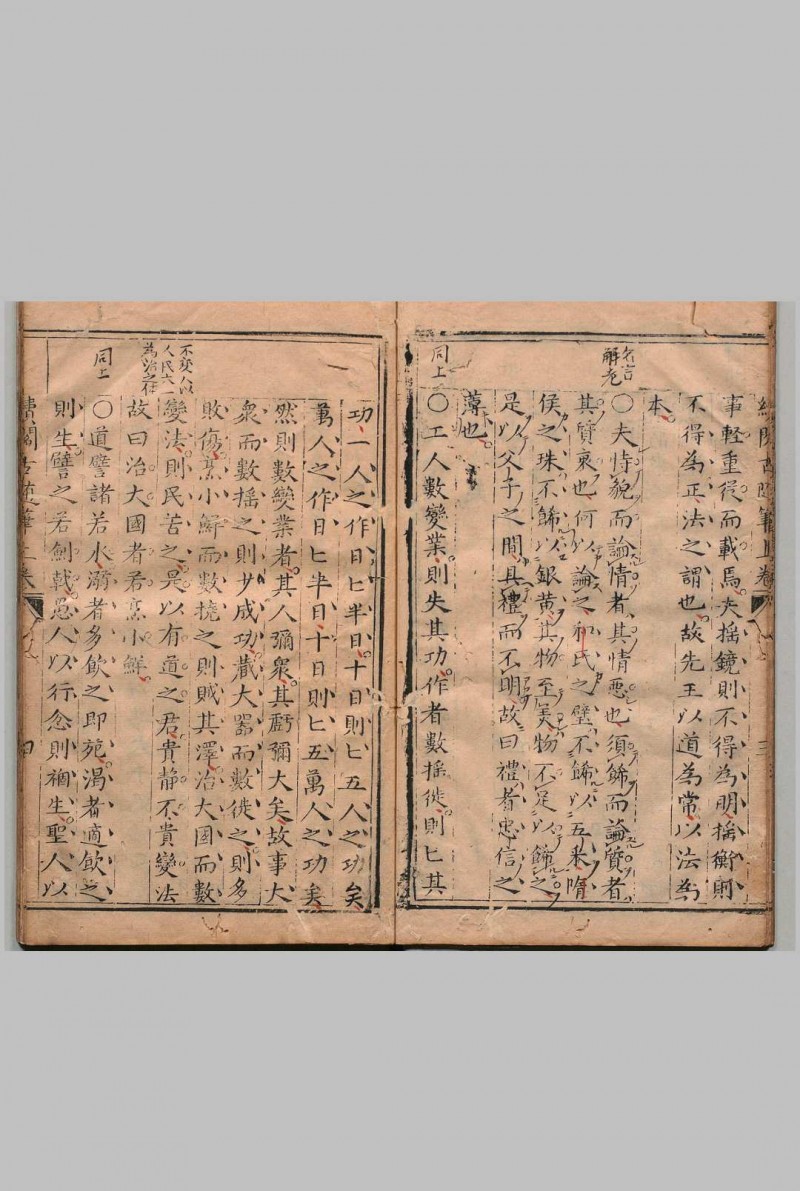 事輕重從而載焉夫搖鏡則不得為明搖衡則
不得為正法之謂也故先王以道為常以法為
本
名言
解老
○夫恃貌而論情者其情悪也須餙而論質者
其質衰也何以論之和氏之璧不餙以五采隋
侯之珠不餙以銀黄其物至美物不足以餙之
是以父子之間其禮而不明故曰禮者忠信之
薄也
同上
○工人數變業則失其功作者數搖徙則亡其
功一人之作日亡半日十日則亡五人之功矣
萬人之作日亡半日十日則亡五萬人之功矣
然則數變業者其人彌衆其虧彌大矣故事大
衆而數搖之則少成功藏大器而數徙之則多
敗傷烹小鮮而數撓之則賊其澤治大国而數
變法則民苦之是以有道之君貴静不貴變法
故曰治大國者若烹小鮮
同上
○道譬諸若水溺者多飲之即死渇者適飲之
則生譬之若劍戟愚人以行忿則禍生聖人以